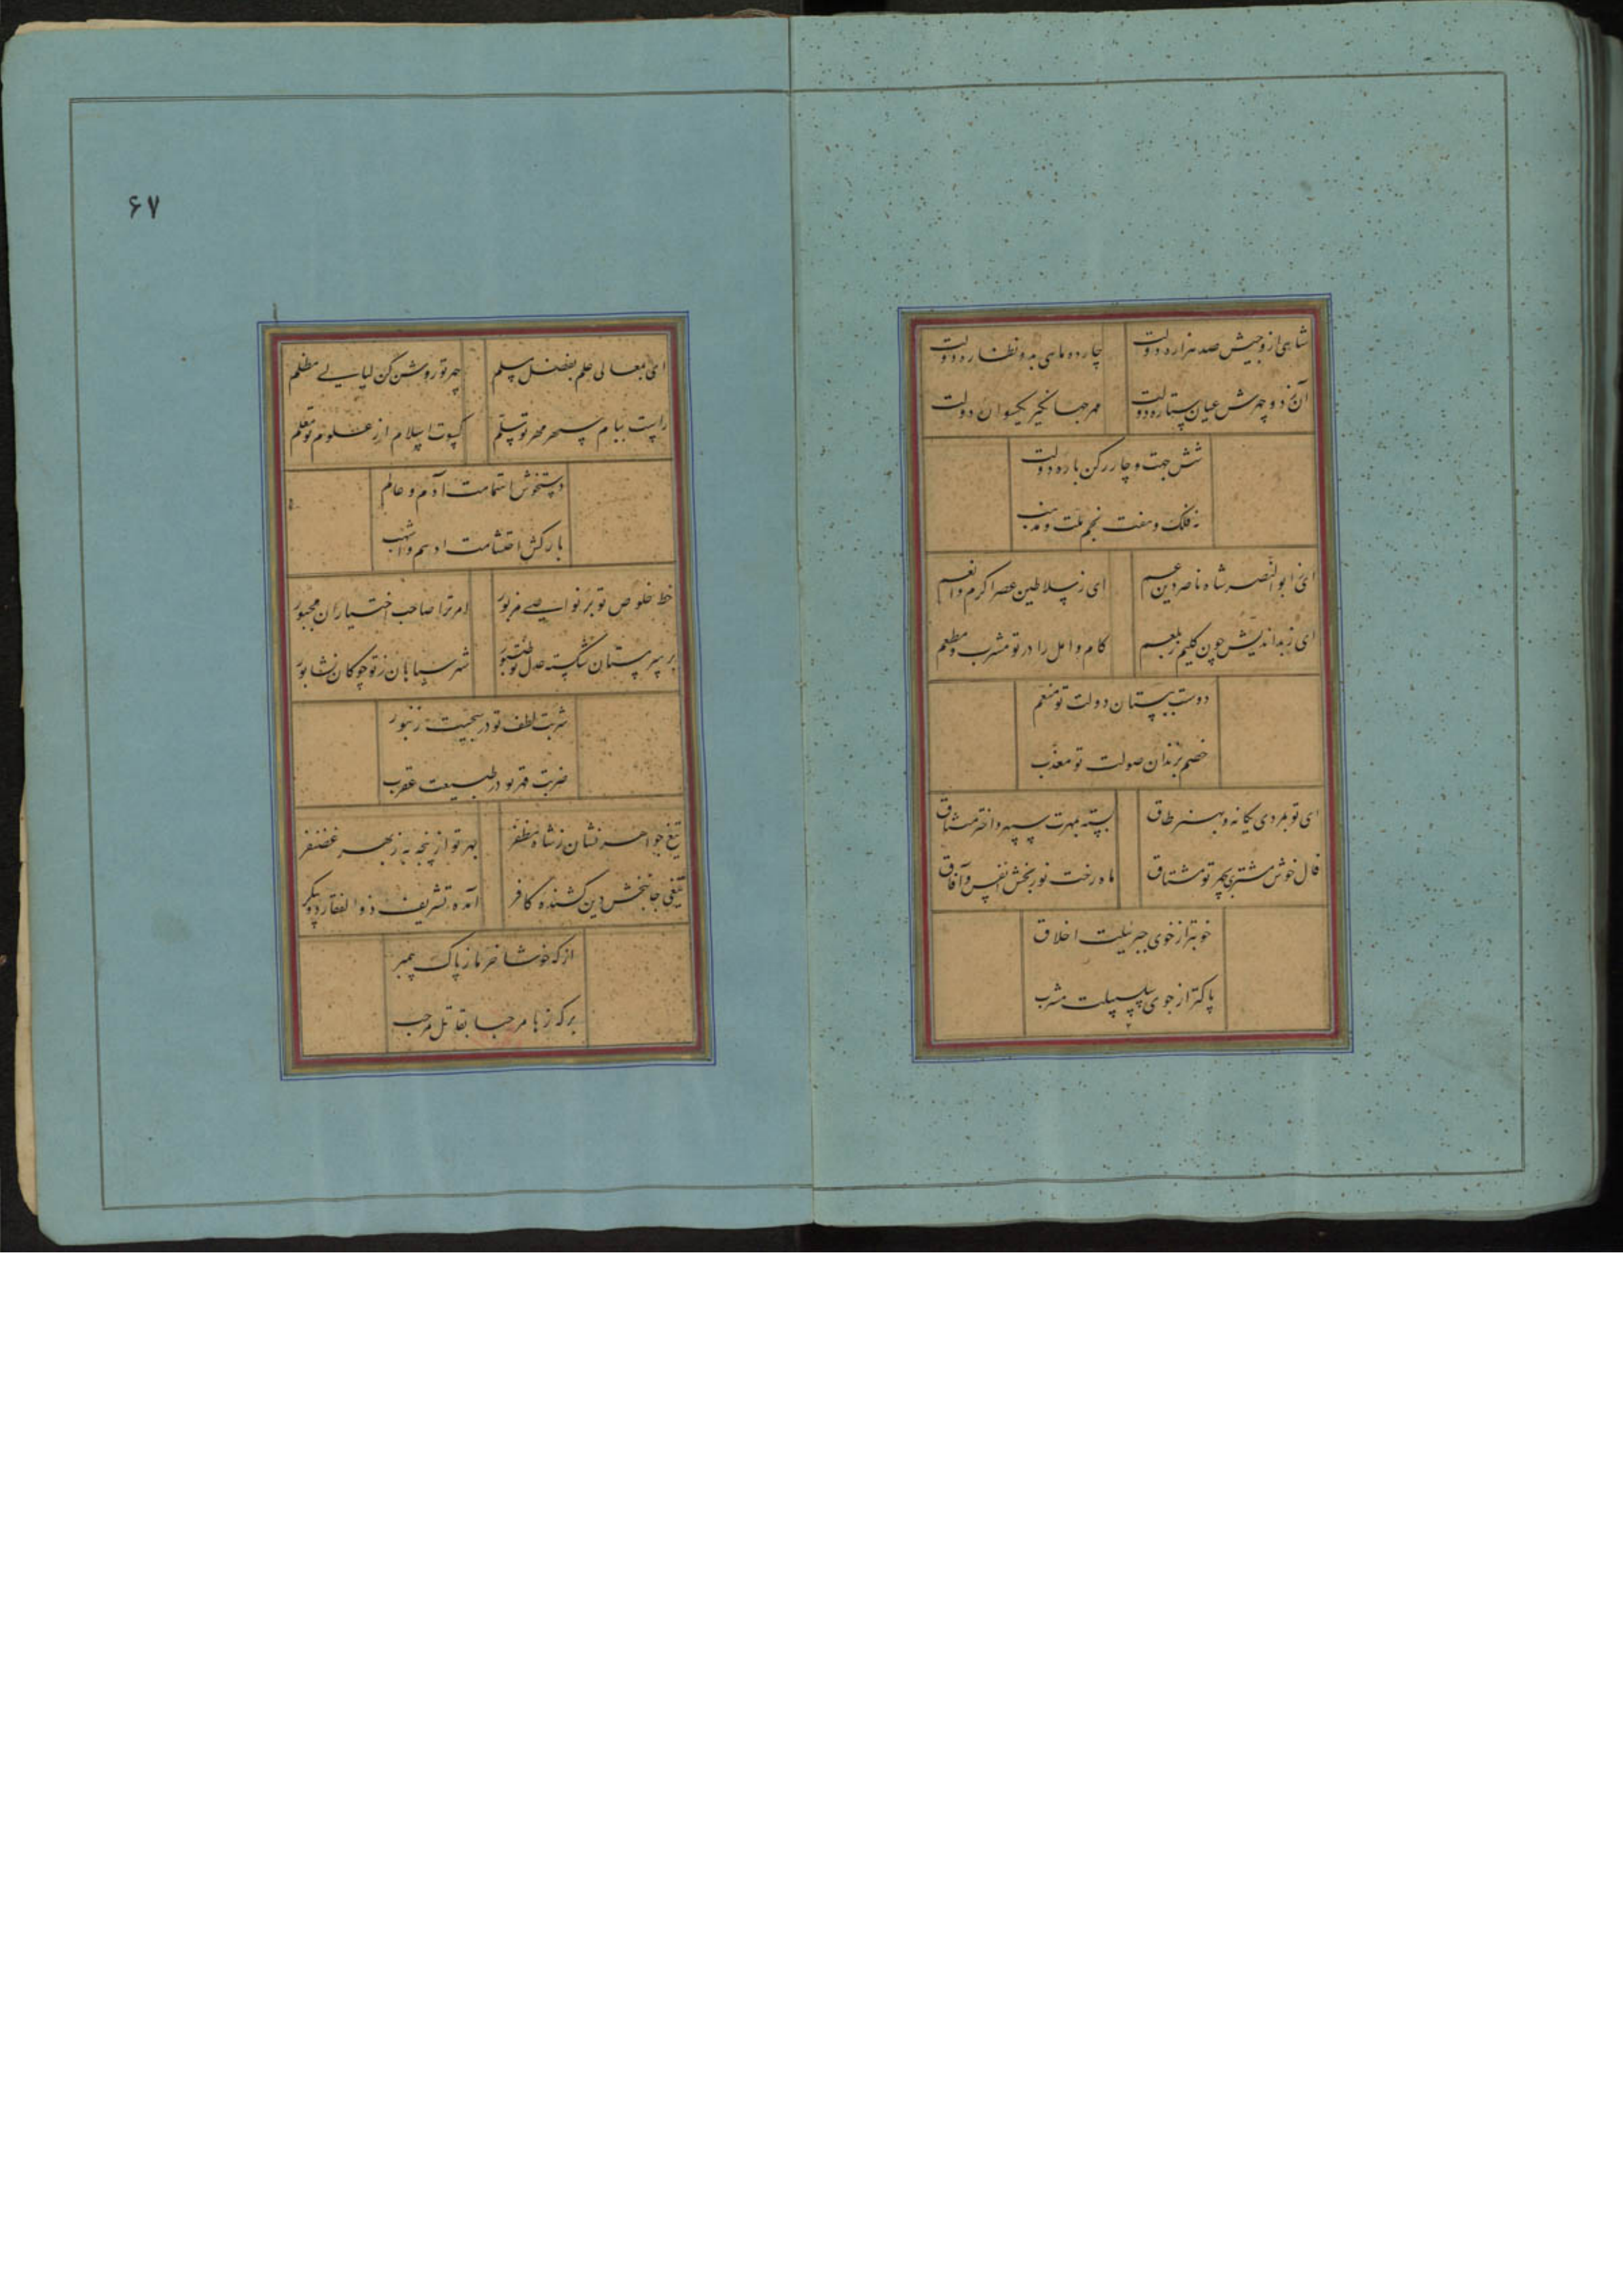 شاهی از وجیش صد هزاره دولت
چاره و ماهی بدو نظاره دولت
آن ز دو چهرش عیان ستاره دولت
مهر جهانگیر یکسوان دولت
شش جهت و چار رکن باره دولت
نه فلک و هفت نجم ملت و مذهب
ای ابوالنصر شاه ناصر دین عم
ای ز سلاطین عصر اکرم و انعم
ای ز بداندیش چون کلیم ز بلعم
کام و امل را در تو مشرب و مطعم
دوست ببستان دولت تو منعم
خصم بزندان صولت تو معذب
ای تو بمردی یگانه و بهنر طاق
بسته بمهرت سپهر و اختر میثاق
فال خوش مشتری بچهر تو مشتاق
ماه رخت نور بخش انفس و آفاق
خوبتر از خوی جبرئیلت اخلاق
پاکتر از جوی سلسبیلت مشرب
۶۷
ای بمعالی علم بفضل مسلم
چهر تو روشن کن لیالی مظلم
راست ببام سپهر مهر تو سلم
کسوت اسلام از علوم تو معلم
دستخوش اهتمامت آدم و عالم
بارکش احتشامت ادهم و اشهب
خط خلوص تو بر نواصی مزبور
امر ترا صاحب اختیاران مجبور
بر سر مستان شکسته عدل تو طنبور
شهر سپاهان ز تو چو کان نشابور
شربت لطف تو در سجیت زنبور
ضربت قهر تو در طبیعت عقرب
تیغ جواهر نشان ز شاه مظفر
بهر تو از پنجه به ز بهر غضنفر
تیغی جانبخش دین کشنده کافر
آمده تشریف ذوالفقار دو پیکر
از که خوشا خرما ز پاک پیمبر
بر که زها مرحبا بقاتل مرحب